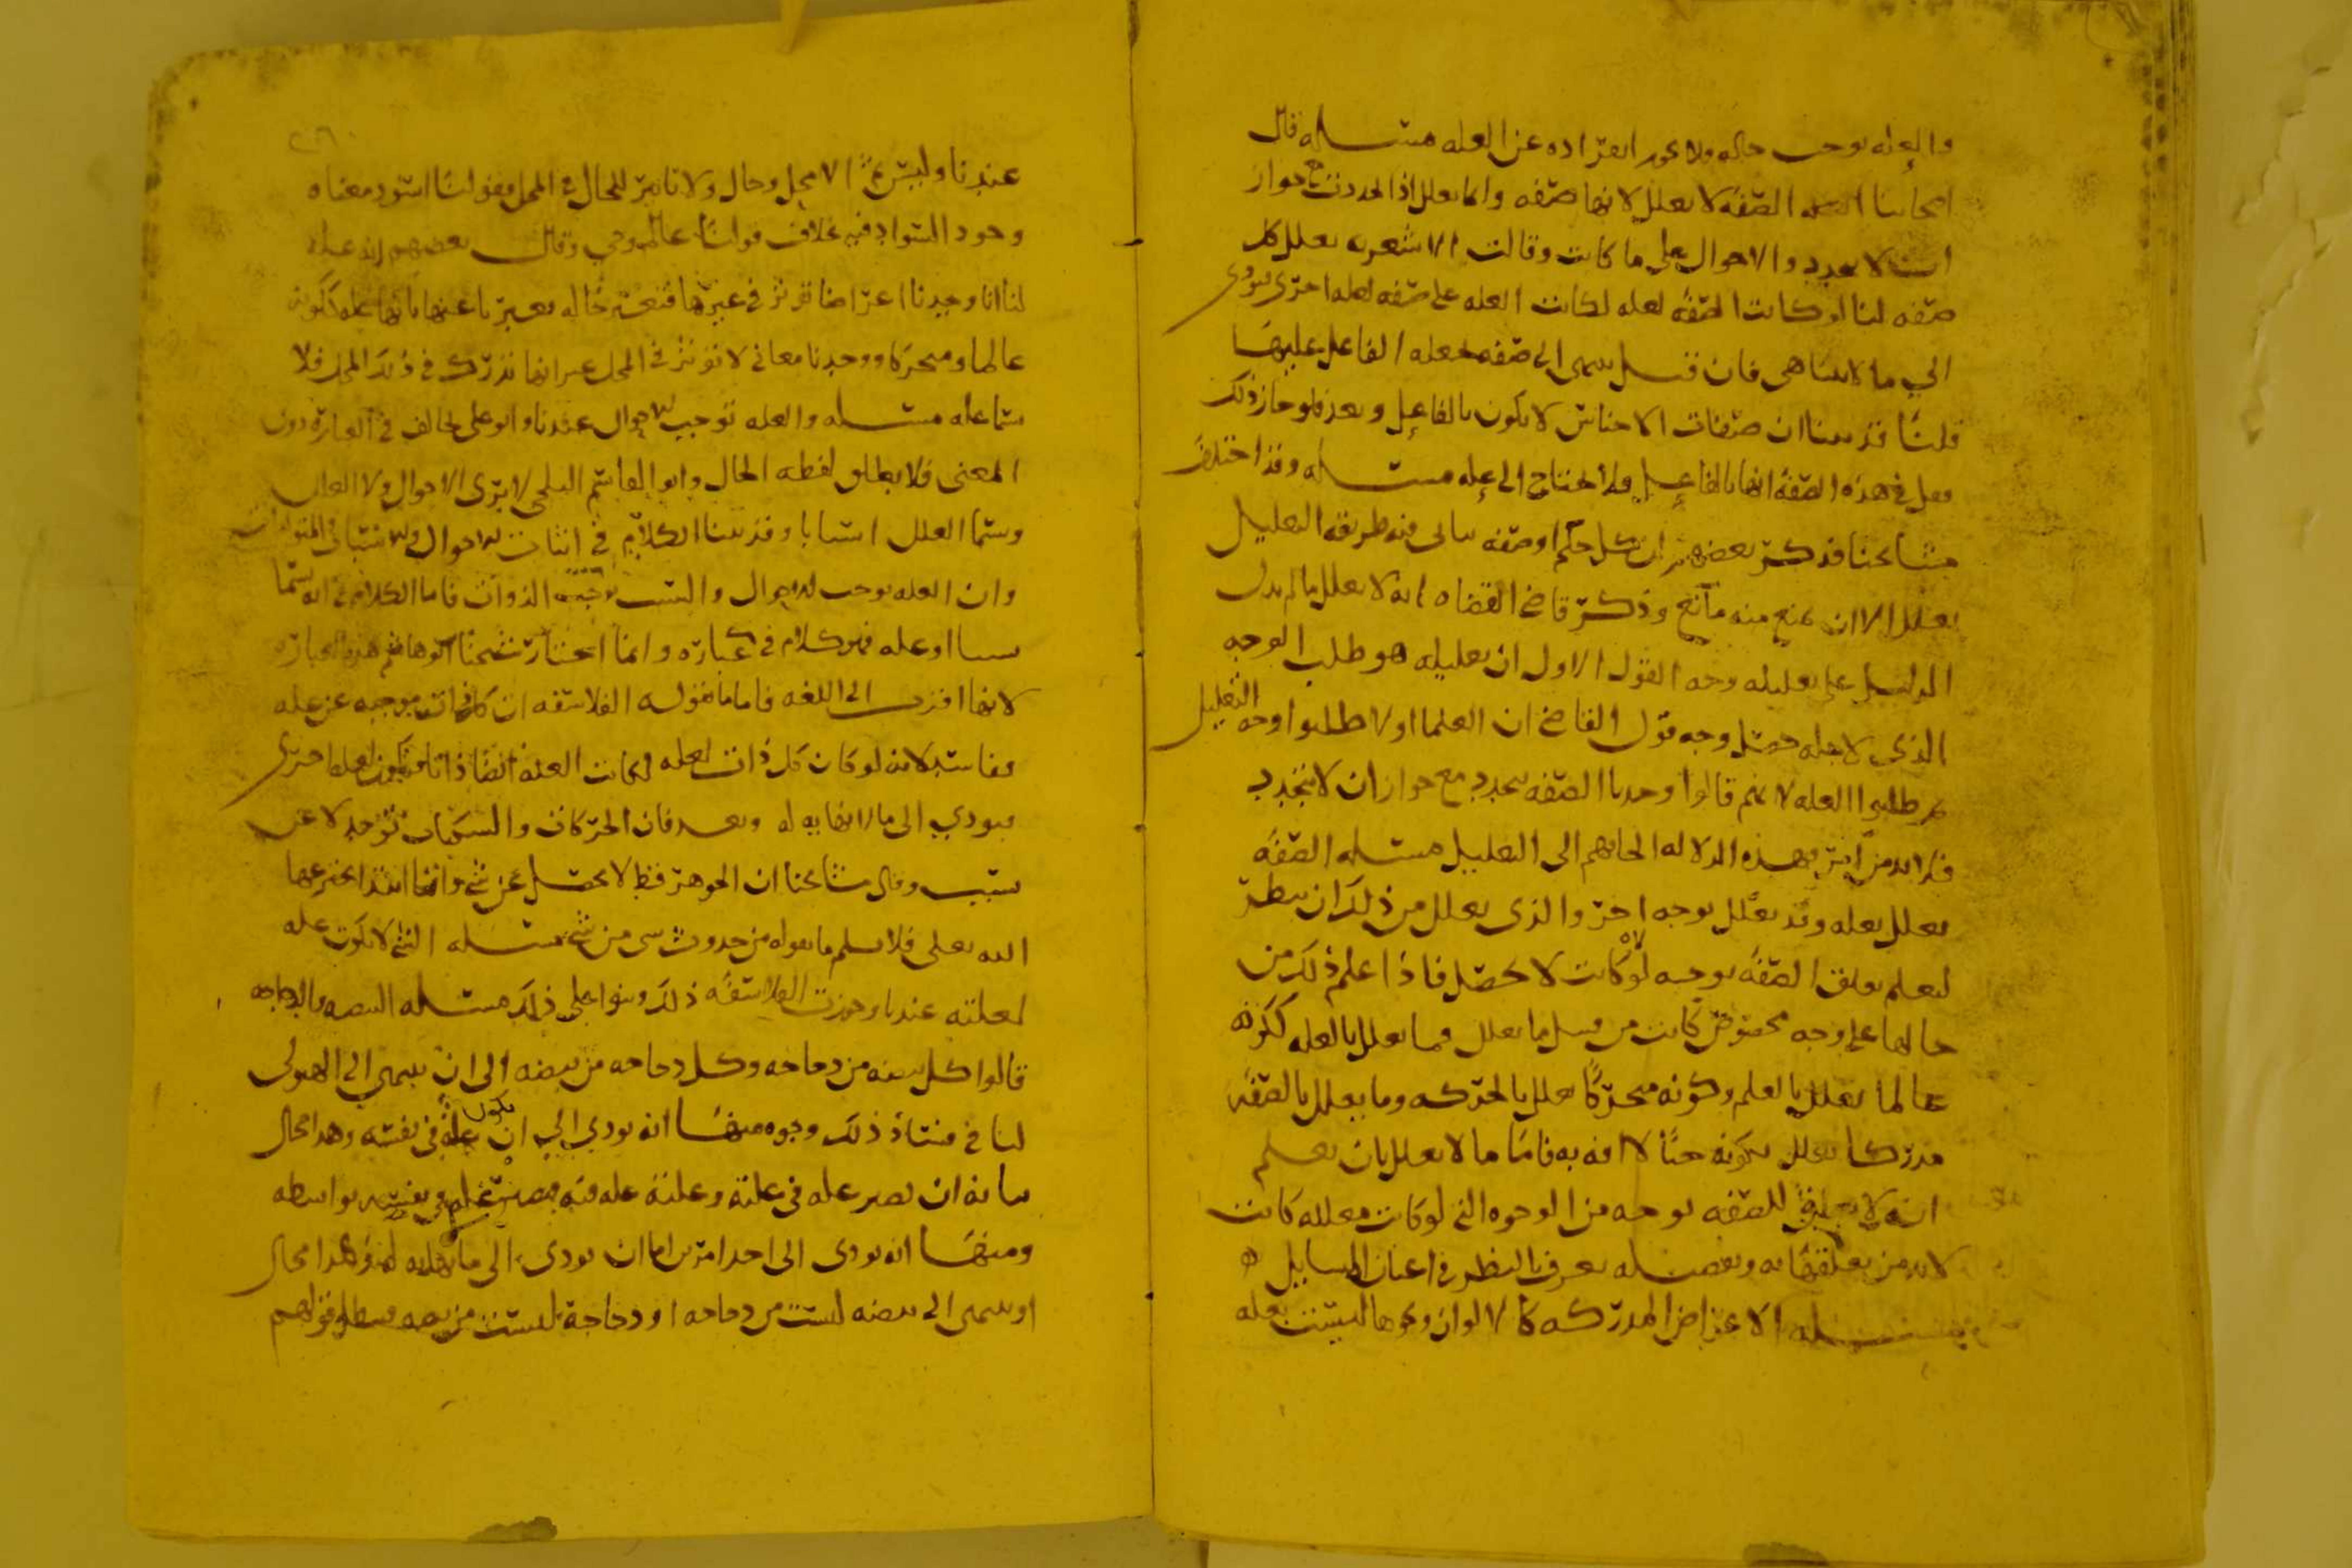 والعله توجب حاله ولا يجوز انفراده عن العله مسله قال
اصحابنا الصفه لا تعلل لانها صفه وانما تعلل اذا تجددت مع جواز
ان لا تتجدد والاحوال على ما كانت وقالت الاشعريه تعلل كل
صفه لنا لو كانت الصفه لعله لكانت العله على صفه لعله اخرى فيودى
الي ما لا يتناهى فان قيل ينتهى الى صفه تجعله الفاعل عليها
قلنا قد بينا ان صفات الاجناس لا يكون بالفاعل وبعد فلو جاز ذلك
فقل في هذه الصفه انها بالفاعل فلا تحتاج الى عله مسله وقد اختلف
مشايخنا فذكر بعضهم ان كل حكم او صفه يتاتى فيه طريقه التعليل
يعلل الا ان يمنع منه مانع وذكر قاضي القضاه انه لا يعلل ما لم يدل
الدليل على تعليله وجه القول الاول ان تعليله هو طلب الوجه
الذي لاجله حصل وجه قول القاضي ان العلما اولا طلبوا وجه التعليل
ثم طلبوا العله لانهم قالوا وجدنا الصفه تتجدد مع جواز ان لا تتجدد
فلا بد من امر فهذه الدلاله الجاتهم الى التعليل مسله الصفه
تعلل بعله وقد تعلل بوجه اخر والذي يعلل من ذلك ان ينظر
ليعلم تعلق الصفه بوجه لولاه كانت لا تحصل فاذا علم ذلك من
حالها على وجه مخصوص كانت من قبيل ما يعلل فما يعلل بالعله ككونه
عالما يعلل بالعلم وكونه متحركا يعلل بالحركه وما يعلل بالصفه
مدركا يعلل بكونه حيا لا افه به فاما ما لا يعلل بان يعلم
انه لا تعلق للصفه بوجه من الوجوه التي لو كانت معلله كانت
لا بد من تعلقها به وتفصيله يعرف بالنظر في اعيان المسايل
مسله الاعراض المدركه كالالوان ونحوها ليست بعله
عندنا وليس ثم الا محل وحال ولا تاثير للحال في المحل فقولنا اسود معناه
وجود السواد فيه بخلاف قولنا عالم وحي وقال بعضهم انه عله
لنا انا وجدنا اعراضا تؤثر في غيرها فتغير حاله فعبرنا عنها بانها عله ككونه
عالما ومتحركا ووجدنا معاني لا تؤثر في المحل غير انها تدرك في ذلك المحل فلا
تسما عله مسله والعله توجب الاحوال عندنا وابو علي يخالف في العباره دون
المعنى فلا يطلق لفظه الحال وابو القاسم البلخي لا يرى الاحوال ولا العلل
وسما العلل اسبابا وقد بينا الكلام في اثبات الاحوال والاسباب والمتولدات
وان العله توجب الاحوال والسبب يوجب الذوات فاما الكلام في انه يسما
سببا او عله فهو كلام في عباره وانما اختار شيخنا ابو هاشم هذه العباره
لانها اقرب الى اللغه فاما ما تقوله الفلاسفه ان كل ذات موجبه عن عله
ففاسد لانه لو كان كل ذات لعله لكانت العله ايضا ذاتا فتكون لعله اخرى
فيودي الى ما لا نهايه له وبعد فان الحركات والسكنات توجد لا عن
سبب وقال مشايخنا ان الجوهر قط لا يحصل عن شي وانما ابتدا اخترعها
الله تعلى فلا نسلم ما يقوله من حدوث شى من شي مسله الشي لا يكون عله
لعلته عندنا وجوزت الفلاسفه ذلك وبنوا على ذلك مسله البيضه والدجاجه
قالوا كل بيضه من دجاجه وكل دجاجه من بيضه الى ان ينتهي الى الهيولى
لنا في فساد ذلك وجوه منها انه يودي الى ان يكون عله في نفسه وهذا محال
بيانه ان يصير عله في علته وعلته عله فيه فيصير عله في نفسه بواسطه
ومنها انه يودى الى احد امرين اما ان يودى الى ما لا نهايه له وهذا محال
او ينتهى الى بيضه ليست من دجاجه او دجاجه ليست من بيضه فبطل قولهم